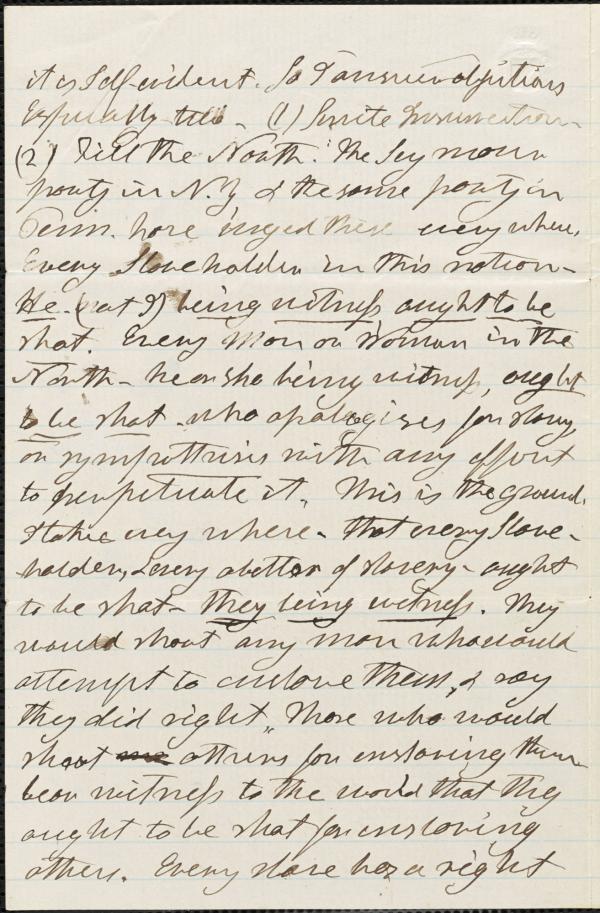 it is Self-evident. So I answer objections
Equally true - (1) Servile Insurrection -
(2) Kill the North. The Seymour
party in N.Y. & the same party in
Penn. have urged these every where.
Every Slaveholder in this nation -
He - (not I) being witness ought to be
shot. Every Man or Woman in the
North - he or she being witness, ought
to be shot - who apologizes for slavery,
or sympathises with any effort
to perpetuate it. This is the ground
I take every where - that every Slave-
holder, & every abettor of slavery - ought
to be shot - they being witness. They
would shoot any man who would
attempt to enslave them, & say
they did right. Those who would
shoot others for enslaving them
bear witness to the world that they
ought to be shot for enslaving
others. Every slave has a right